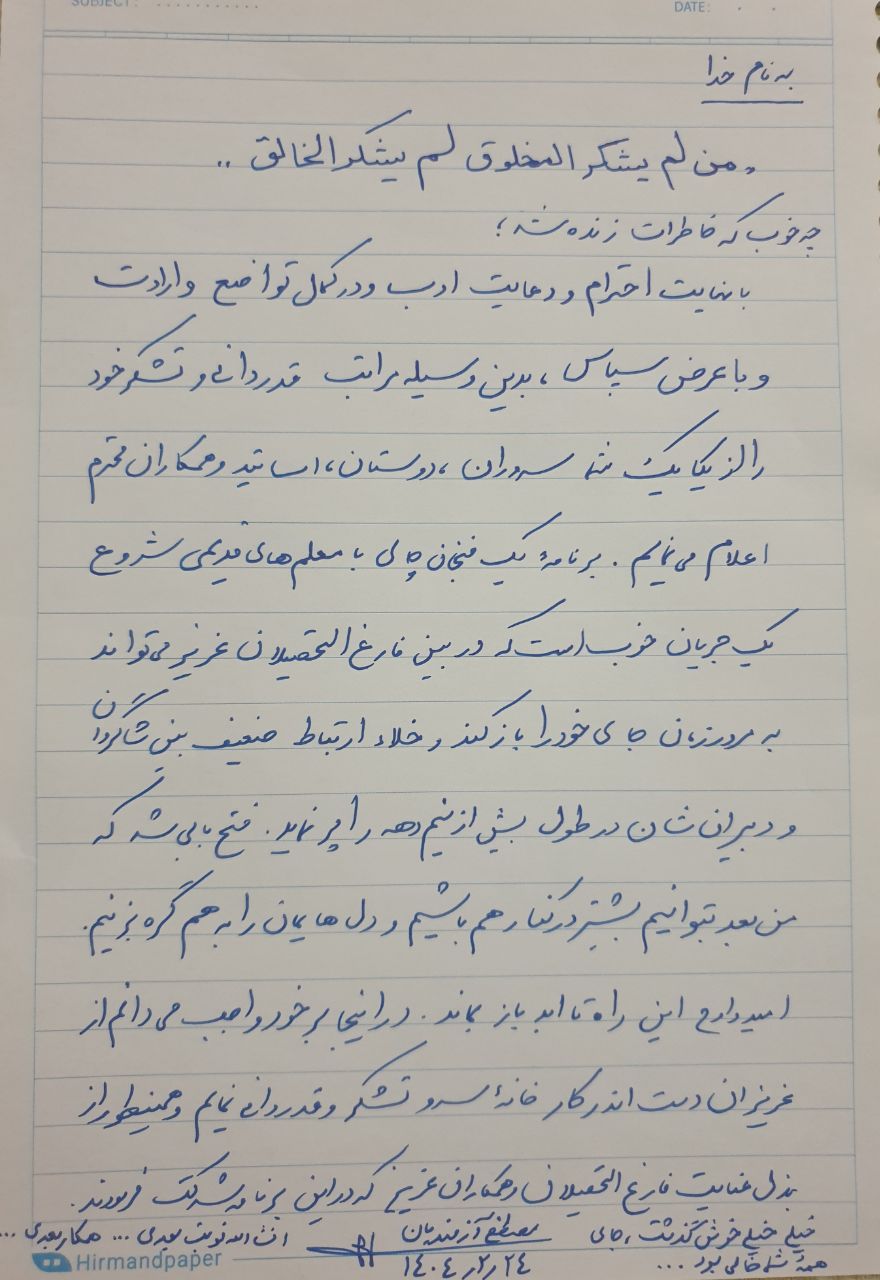 SUBJECT: ...........
DATE: . .
به نام خدا
"من لم یشکر المخلوق لم یشکر الخالق"
چه خوب که خاطرات زنده شد؛
با نهایت احترام و رعایت ادب و در کمال تواضع و ارادت
و با عرض سپاس، بدین وسیله مراتب قدردانی و تشکر خود
را از یکایک شما سروران، دوستان، اساتید و همکاران محترم
اعلام می نمایم. برنامهٔ یک فنجان چای با معلم های قدیمی شروع
یک جریان خوب است که در بین فارغ التحصیلان عزیز می تواند
به مرور زمان جای خود را باز کند و خلاء ارتباط ضعیف بین شاگردان
و دبیران شان در طول بیش از نیم دهه را پر نماید. فتح بابی شد که
من بعد بتوانیم بیشتر در کنار هم باشیم و دل هایمان را به هم گره بزنیم.
امیدوارم این راه تا ابد باز بماند. در اینجا بر خود واجب می دانم از
عزیزان دست اندر کار خانهٔ سرو تشکر و قدردانی نمایم و همینطور از
بذل عنایت فارغ التحصیلان و همکاران عزیز که در این برنامه شرکت فرمودند.
خیلی خیلی خوش گذشت، جای
همهٔ شما خالی بود ...
مصطفی آزمندیان
۱۴۰۴/۲/۲۴
انشاءالله نوبت بعدی ... همکار بعدی ...
Hirmandpaper